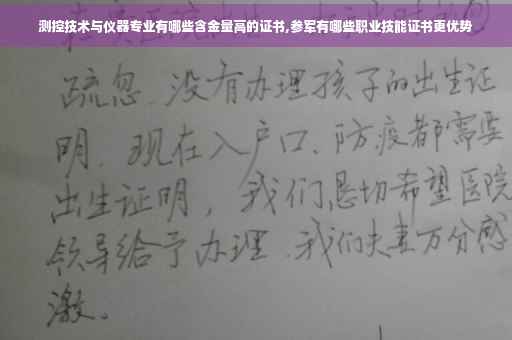 测控技术与仪器专业有哪些含金量高的证书,参军有哪些职业技能证书更优势
疏忽.没有办理孩子的出生证
明.现在入户口、防疫都需要
出生证明，我们恳切希望医院
领导给予办理.我们夫妻万分感
激。